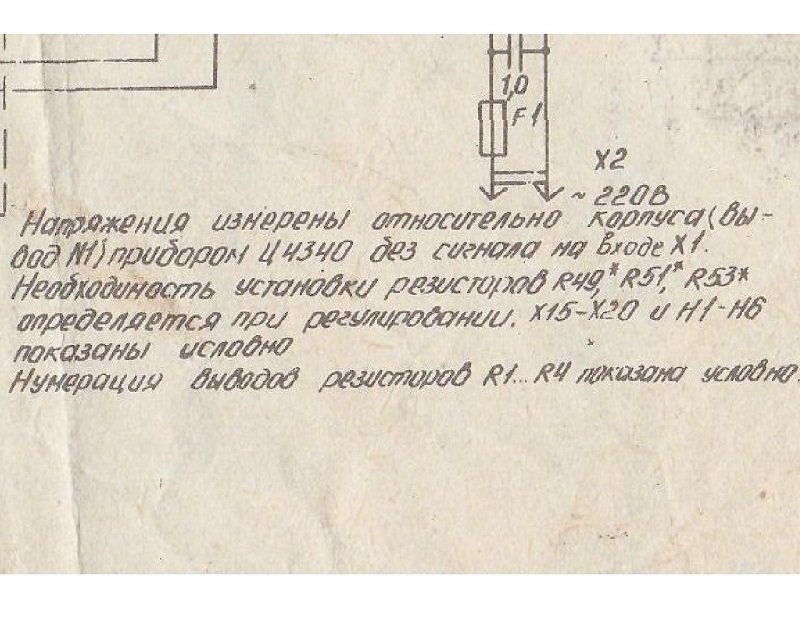 1,0
F1
X2
~ 220В
Напряжения измерены относительно корпуса (вы-
вод №1) прибором Ц4340 без сигнала на входе X1.
Необходимость установки резисторов R49,* R51,* R53*
определяется при регулировании. X15-X20 и H1-H6
показаны условно
Нумерация выводов резисторов R1...R4 показана условно.